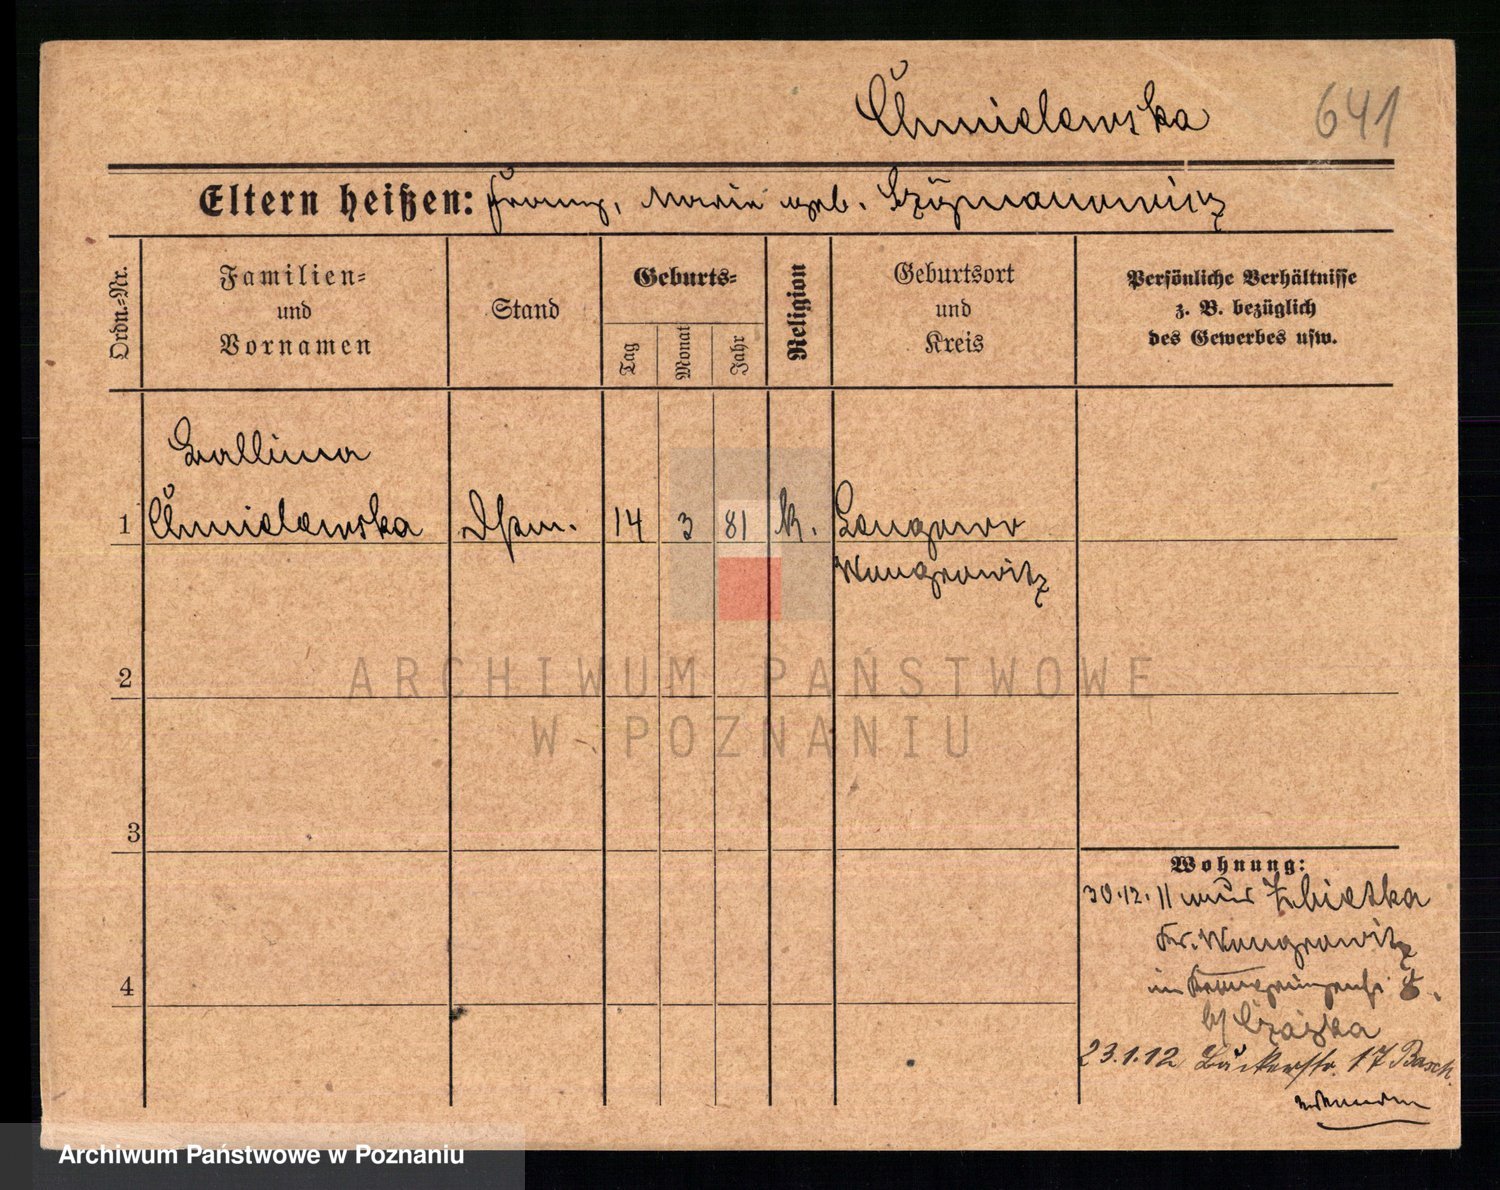 Chmielewska 641
Eltern heißen: Franz, Marie geb. Szymanowicz
Ordn.-Nr.
Familien-
und
Vornamen
Stand
Geburts-
Tag
Monat
Jahr
Religion
Geburtsort
und
Kreis
Persönliche Verhältnisse
z. B. bezüglich
des Gewerbes usw.
Hallina
1 Chmielewska 14 3 81 k.
Wongrowitz
2
3
4
Wohnung:
30.12.11
Kr. Wongrowitz
23.1.12 Bäckerstr. 17
ARCHIWUM PAŃSTWOWE
W POZNANIU
Archiwum Państwowe w Poznaniu